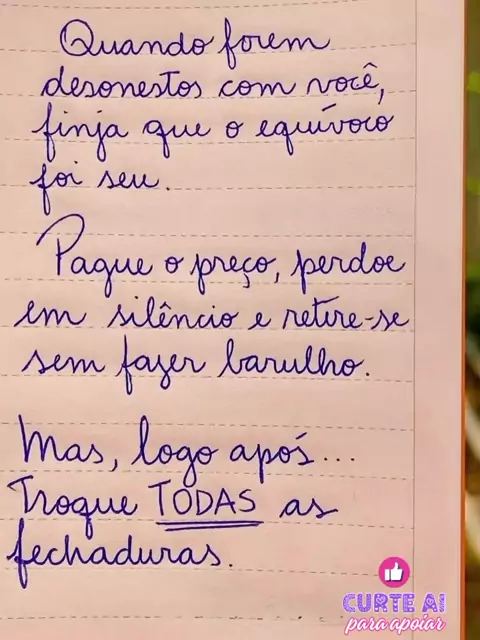 Quando forem
desonestos com você,
finja que o equívoco
foi seu.
Pague o preço, perdoe
em silêncio e retire-se
sem fazer barulho.
Mas, logo após...
Troque TODAS as
fechaduras.
CURTE AI
para apoiar